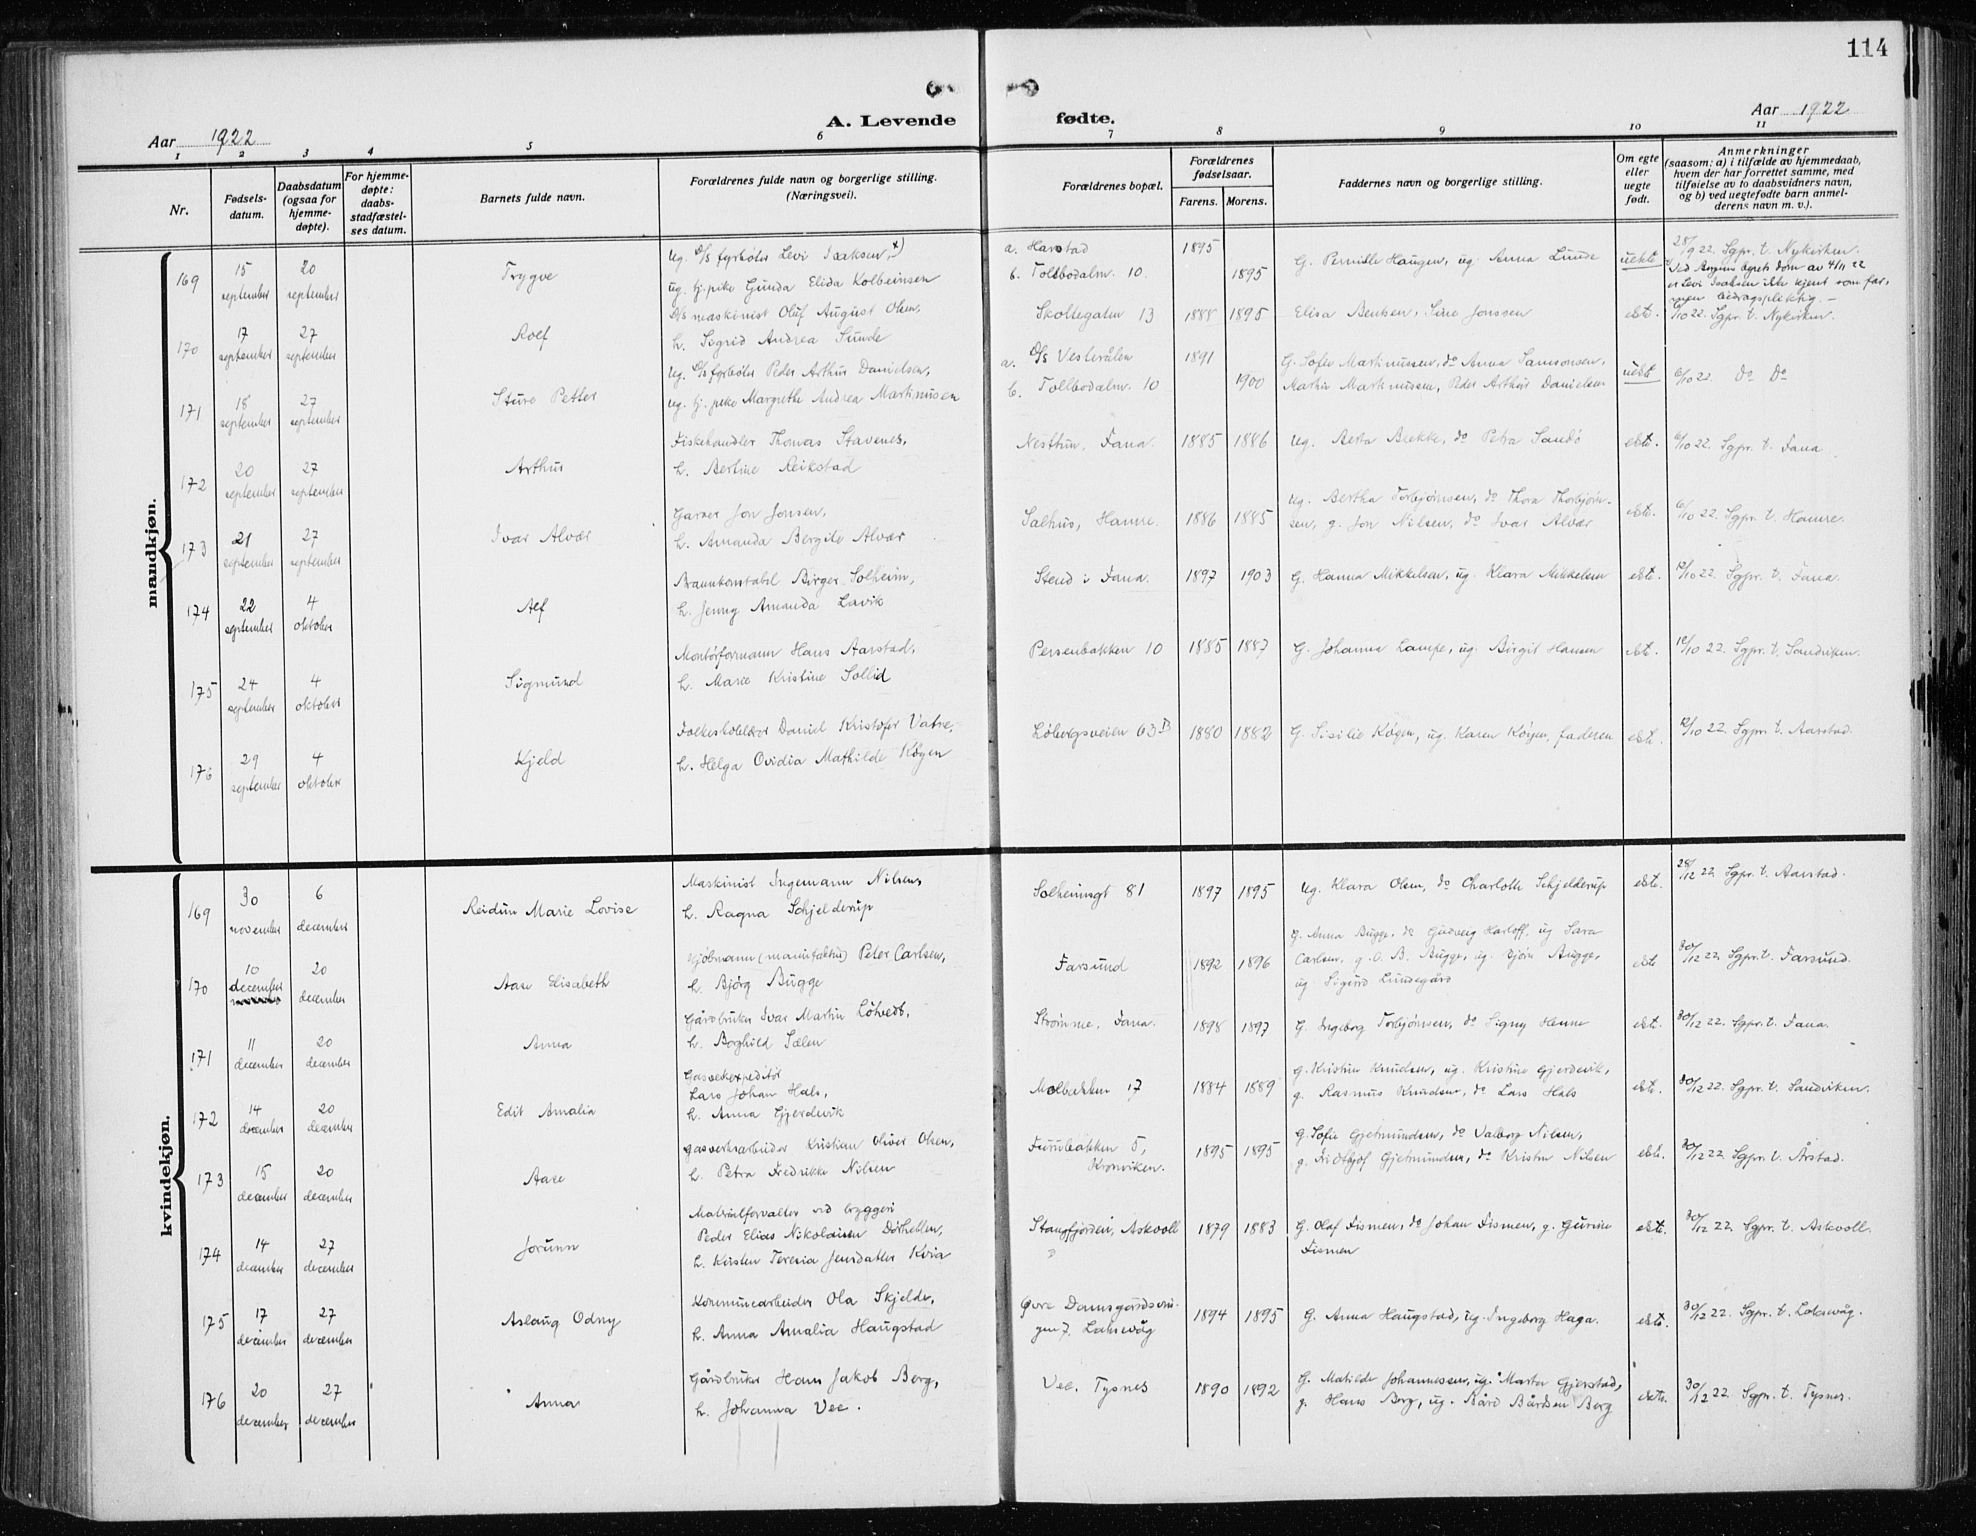 114
Aar 1922
A. Levende fødte.
Aar 1922
1 2 3 4 5 6 7 8 9 10 11
Nr.
Fødsels-
datum.
Daabsdatum
(ogsaa for
hjemme-
døpte).
For hjemme-
døpte:
daabs-
stadfæstel-
ses datum.
Barnets fulde navn.
Forældrenes fulde navn og borgerlige stilling.
(Næringsvei).
Forældrenes bopæl.
Forældrenes
fødselsaar.
Farens. Morens.
Faddernes navn og borgerlige stilling.
Om egte
eller
uegte
født.
Anmerkninger
(saasom: a) i tilfælde av hjemmedaab,
hvem der har forrettet samme, med
tilføielse av to daabsvidners navn,
og b) ved uegtefødte barn anmel-
derens navn m. v.).
mandkjøn.
169 15 september 20 september Trygve
ug. D/S fyrbøter Levi Isaksen, x)
ug. tj. pike Gunda Elida Kolbeinsen
a. Harstad
b. Tollbodalm. 10.
1895
1895
G. Pernille Haugen, ug. Anna Lunde
uekte
28/9 22. Sgpr. t. Nykirken.
x) Ved dom av 4/11 22
er Levi Isaksen ikke kjent som far,
men bidragspliktig. –
170 17 september 27 september Rolf
D/S maskinist Oluf August Olsen,
h. Sigrid Andrea Sunde
Skoltegaten 13 1888 1895
Elisa Bentsen, Sine Jonssen
ekte.
6/10 22. Sgpr. t. Nykirken.
171 18 september 27 september Sture Petter
ug. D/S fyrbøter Peder Arthur Danielsen,
ug. tj. pike Margrethe Andrea Martinusen
a. D/S Vesterålen
b. Tollbodalm. 10
1891
1900
G. Sofie Martinussen, do Anna Samsonsen,
Martin Martinussen, Peder Arthur Danielsen
uekte
6/10 22. Do Do
172 20 september 27 september Arthur
Fiskehandler Thomas Stavenes,
h. Bertine Reikstad
Nesttun, Fana. 1885 1886
ug. Berta Brekke, do Petra Sandø
ekte.
6/10 22. Sgpr. t. Fana
173 21 september 27 september Ivar Alvær
Garver Jon Jonsen,
h. Amanda Bergite Alvær
Salhus, Hamre. 1886 1885
ug. Bertha Torbjørnsen, do Thora Thorbjørn-
sen, g. Jon Nilsen, do Ivar Alvær
ekte.
6/10 22. Sgpr. t. Hamre.
174 22 september 4 oktober Alf
Brannkonstabel Birger Solheim,
h. Jenny Amanda Lavik
Stend i Fana. 1897 1903
G. Hanna Mikkelsen, ug. Klara Mikkelsen
ekte.
12/10 22. Sgpr. t. Fana.
175 24 september 4 oktober Sigmund
Montørformann Hans Aarstad,
h. Marie Kristine Sollid
Persenbakken 10 1885 1887
G. Johanna Lampe, ug. Birgit Hansen
ekte.
12/10 22. Sgpr. t. Sandviken.
176 29 september 4 oktober Kjeld
Folkeskolelærer Daniel Kristofer Vatne,
h. Helga Ovidia Mathilde Køgen
Løbergsveien 63 B 1880 1882
G. Sisilie Køgen, ug. Karen Køgen, faderen
ekte.
12/10 22. Sgpr. t. Aarstad.
kvindekjøn.
169 30 november 6 december Reidun Marie Lovise
Maskinist Ingemann Nilsen,
h. Ragna Schjelderup
Solheimsgt 81 1897 1895
ug. Klara Olsen, do Charlotte Schjelderup
ekte.
28/12 22. Sgpr. t. Aarstad.
170 10 december 20 december Aase Elisabeth
Kjøbmann (manufaktur) Peter Carlsen,
h. Bjørg Bugge
Farsund 1892 1896
G. Anna Bugge, do Gudveig Harloff, ug Sara
Carlsen, g. O. B. Bugge, ug. Bjørn Bugge,
ug. Sigurd Lundegård
ekte
30/12 22. Sgpr. t. Farsund.
171 11 december 20 december Anna
Gårdbruker Ivar Martin Løtvedt,
h. Borghild Sælen
Strømme, Fana. 1898 1897
G. Ingeborg Torbjørnsen, do Signy Henne
ekt.
30/12 22. Sgpr. t. Fana.
172 14 december 20 december Edit Amalia
Gassverkexpeditør
Lars Johan Hals,
h. Anna Gjerdevik
Molbakken 17 1884 1889
g. Kristine Knudsen, ug. Kristine Gjerdevik,
g. Rasmus Knudsen, do Lars Hals
ekte.
30/12 22. Sgpr. t. Sandviken.
173 15 december 20 december Aase
gassverksarbeider Kristian Oliver Olsen,
h. Petra Fredrikke Nilsen
Furubakken 5,
Kronviken.
1895 1895
G. Sofie Gjetmundsen, do Valborg Nilsen,
g. Fridthjof Gjetmundsen, do Kristen Nilsen
ekte.
30/12 22. Sgpr. t. Årstad.
174 14 december 27 december Jorunn
Materialforvalter ved bryggeri
Peder Elias Nikolaisen Dørhellen,
h. Kirsten Teresia Jensdatter Kvia
Stangfjorden, Askvoll 1879 1883
G. Olaf Fismen, do Johan Fismen, g. Gurine
Fismen
ekte.
30/12 22. Sgpr. t. Askvoll.
175 17 december 27 december Aslaug Odny
Kommunearbeider Ola Skjelde,
h. Anna Amalia Haugstad
Øvre Damsgårdsvei-
gen 7. Laksevåg
1894 1895
G. Anna Haugstad, ug. Ingeborg Haga.
ekte.
30/12 22. Sgpr. t. Laksevåg.
176 20 december 27 december Anna
Gårdbruker Hans Jakob Berg,
h. Johanna Vee.
Vee. Tysnes 1890 1892
G. Matilde Johannessen, ug. Marta Gjerstad,
g. Hans Berg, ug. Bård Bårdsen Berg
ekte.
30/12 22. Sgpr. t. Tysnes.